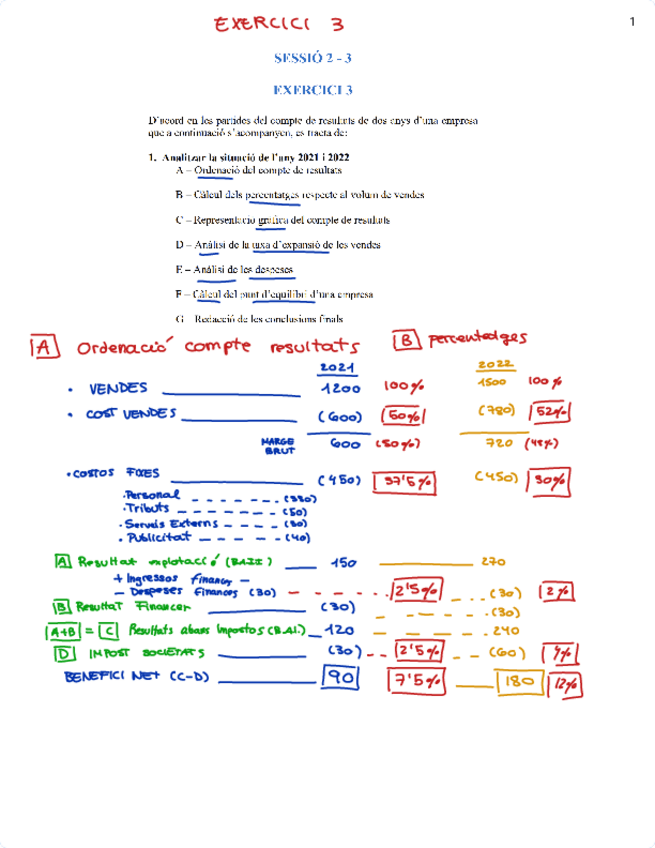 EXERCICI 3
1
SESSIÓ 2 - 3
EXERCICI 3
D'acord en les partides del compte de resultats de dos anys d'una empresa
que a continuació s'acompanyen, es tracta de:
1. Analitzar la situació de l'any 2021 i 2022
A – Ordenació del compte de resultats
B – Càlcul dels percentatges respecte al volum de vendes
C – Representacio grafica del compte de resultats
D – Análisi de la taxa d'expansió de les vendes
E – Análisi de les despeses
F – Càlcul del punt d'equilibri d'una empresa
G – Redacció de les conclusions finals
A Ordenació compte resultats B percentatges
2021 2022
• VENDES 1200 100% 1500 100%
• COST VENDES (600) 50% (780) 52%
MARGE BRUT 600 (50%) 720 (48%)
• COSTOS FIXES (450) 37'5% (450) 30%
· Personal (330)
· Tributs (50)
· Serveis Externs (30)
· Publicitat (40)
A Resultat explotació (BAII) 150 270
+ Ingressos financers –
– Despeses financeres (30) 2'5% (30) 2%
B Resultat Financer (30) (30)
A+B = C Resultats abans Impostos (B.A.I.) 120 240
D IMPOST SOCIETATS (30) 2'5% (60) 4%
BENEFICI NET (C-D) 90 7'5% 180 12%